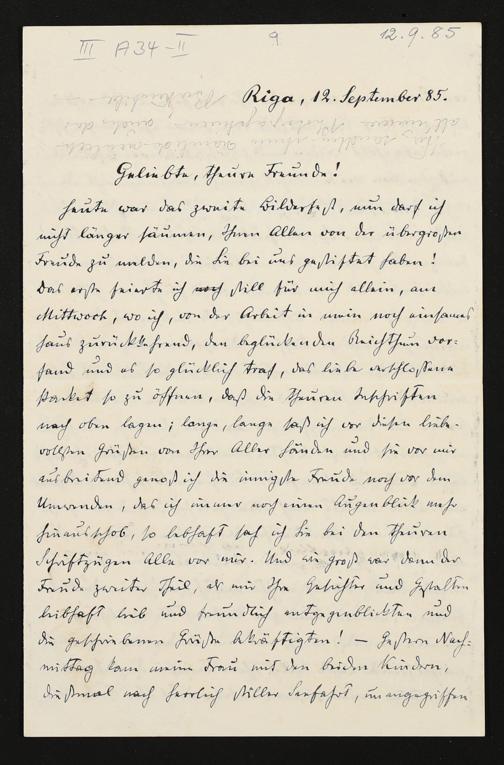 III A34-II 9 12.9.85
Riga, 12. September 85.
Geliebte, theure Freunde!
Heute war das zweite Bilderfest, nun darf ich
nicht länger säumen, Ihnen Allen von der übergroßen
Freude zu melden, die Sie bei uns gestiftet haben!
Das erste feierte ich noch still für mich allein, am
Mittwoch, wo ich, von der Arbeit in mein noch einsames
Haus zurückkehrend, den beglückenden Reichthum vor-
fand und es so glücklich traf, das liebe verschlossene
Packet so zu öffnen, daß die theuren Inschriften
nach oben lagen; lange, lange saß ich vor diesen liebe-
vollsten Grüßen von Ihrer Aller Händen und sie vor mir
ausbreitend genoß ich die innigste Freude noch vor dem
Umwenden, das ich immer noch einen Augenblick mehr
hinausschob, so lebhaft sah ich Sie bei den theuren
Schriftzügen Alle vor mir. Und wie groß war dann der
Freude zweiter Theil, als mir Ihre Gesichter und Gestalten
leibhaft lieb und freundlich entgegenblickten und
die geschriebenen Grüße bekräftigten! — Gestern Nach-
mittag kam meine Frau mit den beiden Kindern,
diesmal nach herrlich stiller Seefahrt, unangegriffen